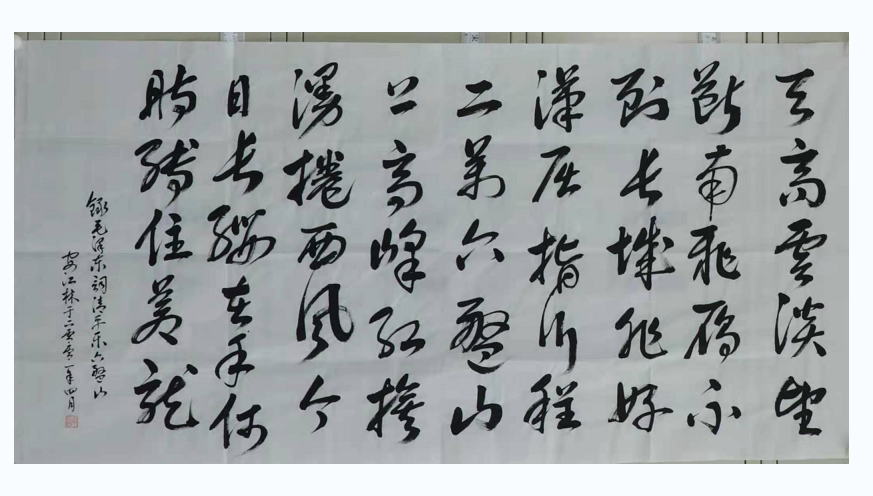 天高雲淡望
斷南飛雁不
到長城非好
漢屈指行程
二萬六盤山
上高峰紅旗
漫捲西風今
日長纓在手何
時縛住蒼龍
錄毛澤東詞清平樂六盤山
安江林于二零一年四月